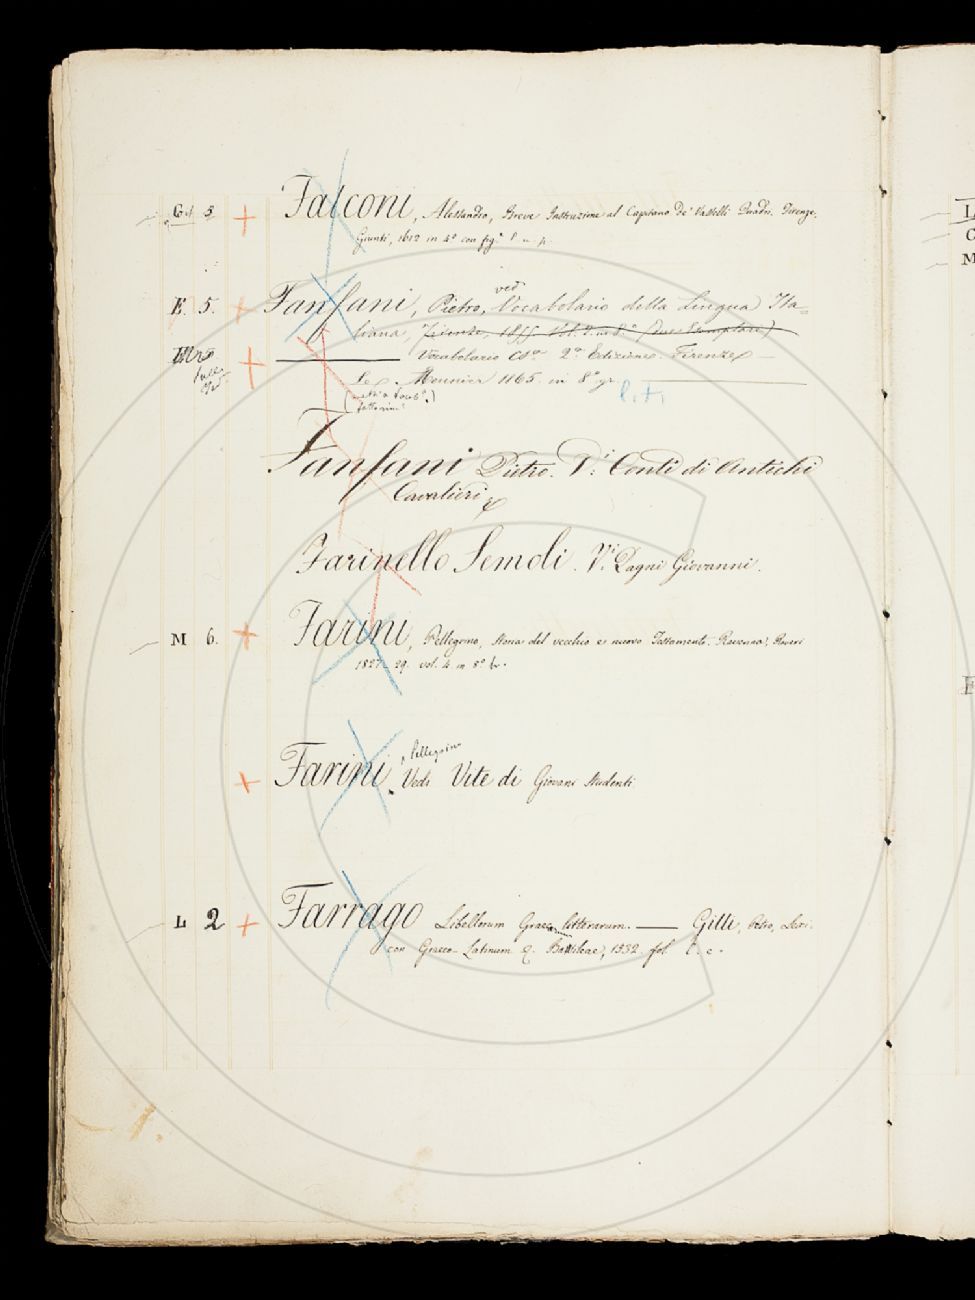 G 5 Falconi, Alessandro, Breve Instruzione al Capitano de' Vasselli Quadri. Firenze,
Giunti, 1612 in 4° con fig.
ved
E. 5. Fanfani, Pietro, Vocabolario della Lingua Ita=
liana, Firenze, 1855 Vol. 2. in 8° (due Esemplari)
Vocabolario 2a Edizione. Firenze
Le Monnier 1865. in 8° gr.
Fanfani Pietro. Vi: Conti di Antichi
Cavalieri
Farinello Semoli. Vi: Dagni Giovanni.
M 6. Farini, Pellegrino, Storia del vecchio e nuovo Testamento. Ravenna, Roveri
1827-29. vol. 4 in 8° br.
, Pellegrino
Farini. Vedi Vite di Giovani Studenti
L 2 Farrago Libellorum Graeco litterarum. — Gilli, Petro, Lexi.
con Graeco-Latinum Basileae, 1532 fol.
L
C
M